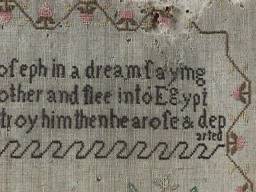 oſeph in a dream ſaying
other and flee into Egypt
troy him then he aroſe & dep
arted